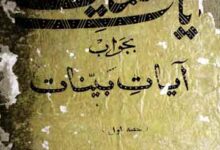 بجواب
آیاتِ بیّنات
(حصہ اول)